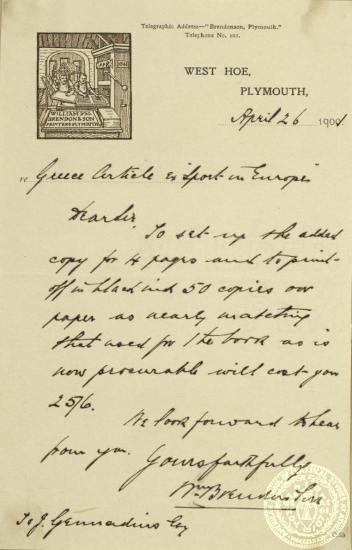 Telegraphic Address—"Brendonson, Plymouth."
Telephone No. 201.
WEST HOE,
PLYMOUTH,
April 26 1901
WILLIAM
BRENDON & SON
PRINTERS PLYMOUTH
re Greece Article ex Sport in Europe
Dear Sir
To set up the added
copy for 4 pages and to print
off in black ink 50 copies our
paper as nearly matching
that used for the book as is
now procurable will cost you
25/6.
We look forward to hear
from you. Yours faithfully
Wm Brendon & Son
To J. Gennadius Esq